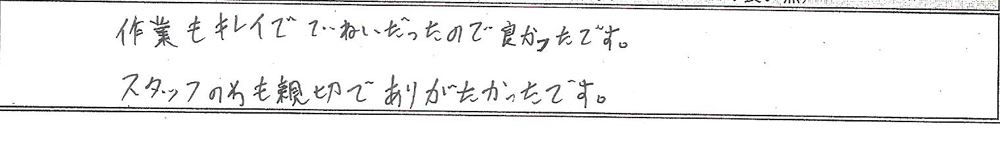 作業もキレイで ていねいだったので良かったです。
スタッフの方も親切でありがたかったです。